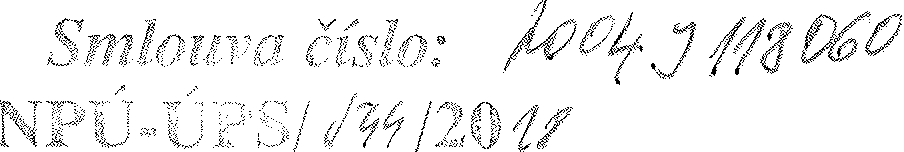 Smlouva číslo: 2004J118060
NPÚ-ÚPS/ /2018